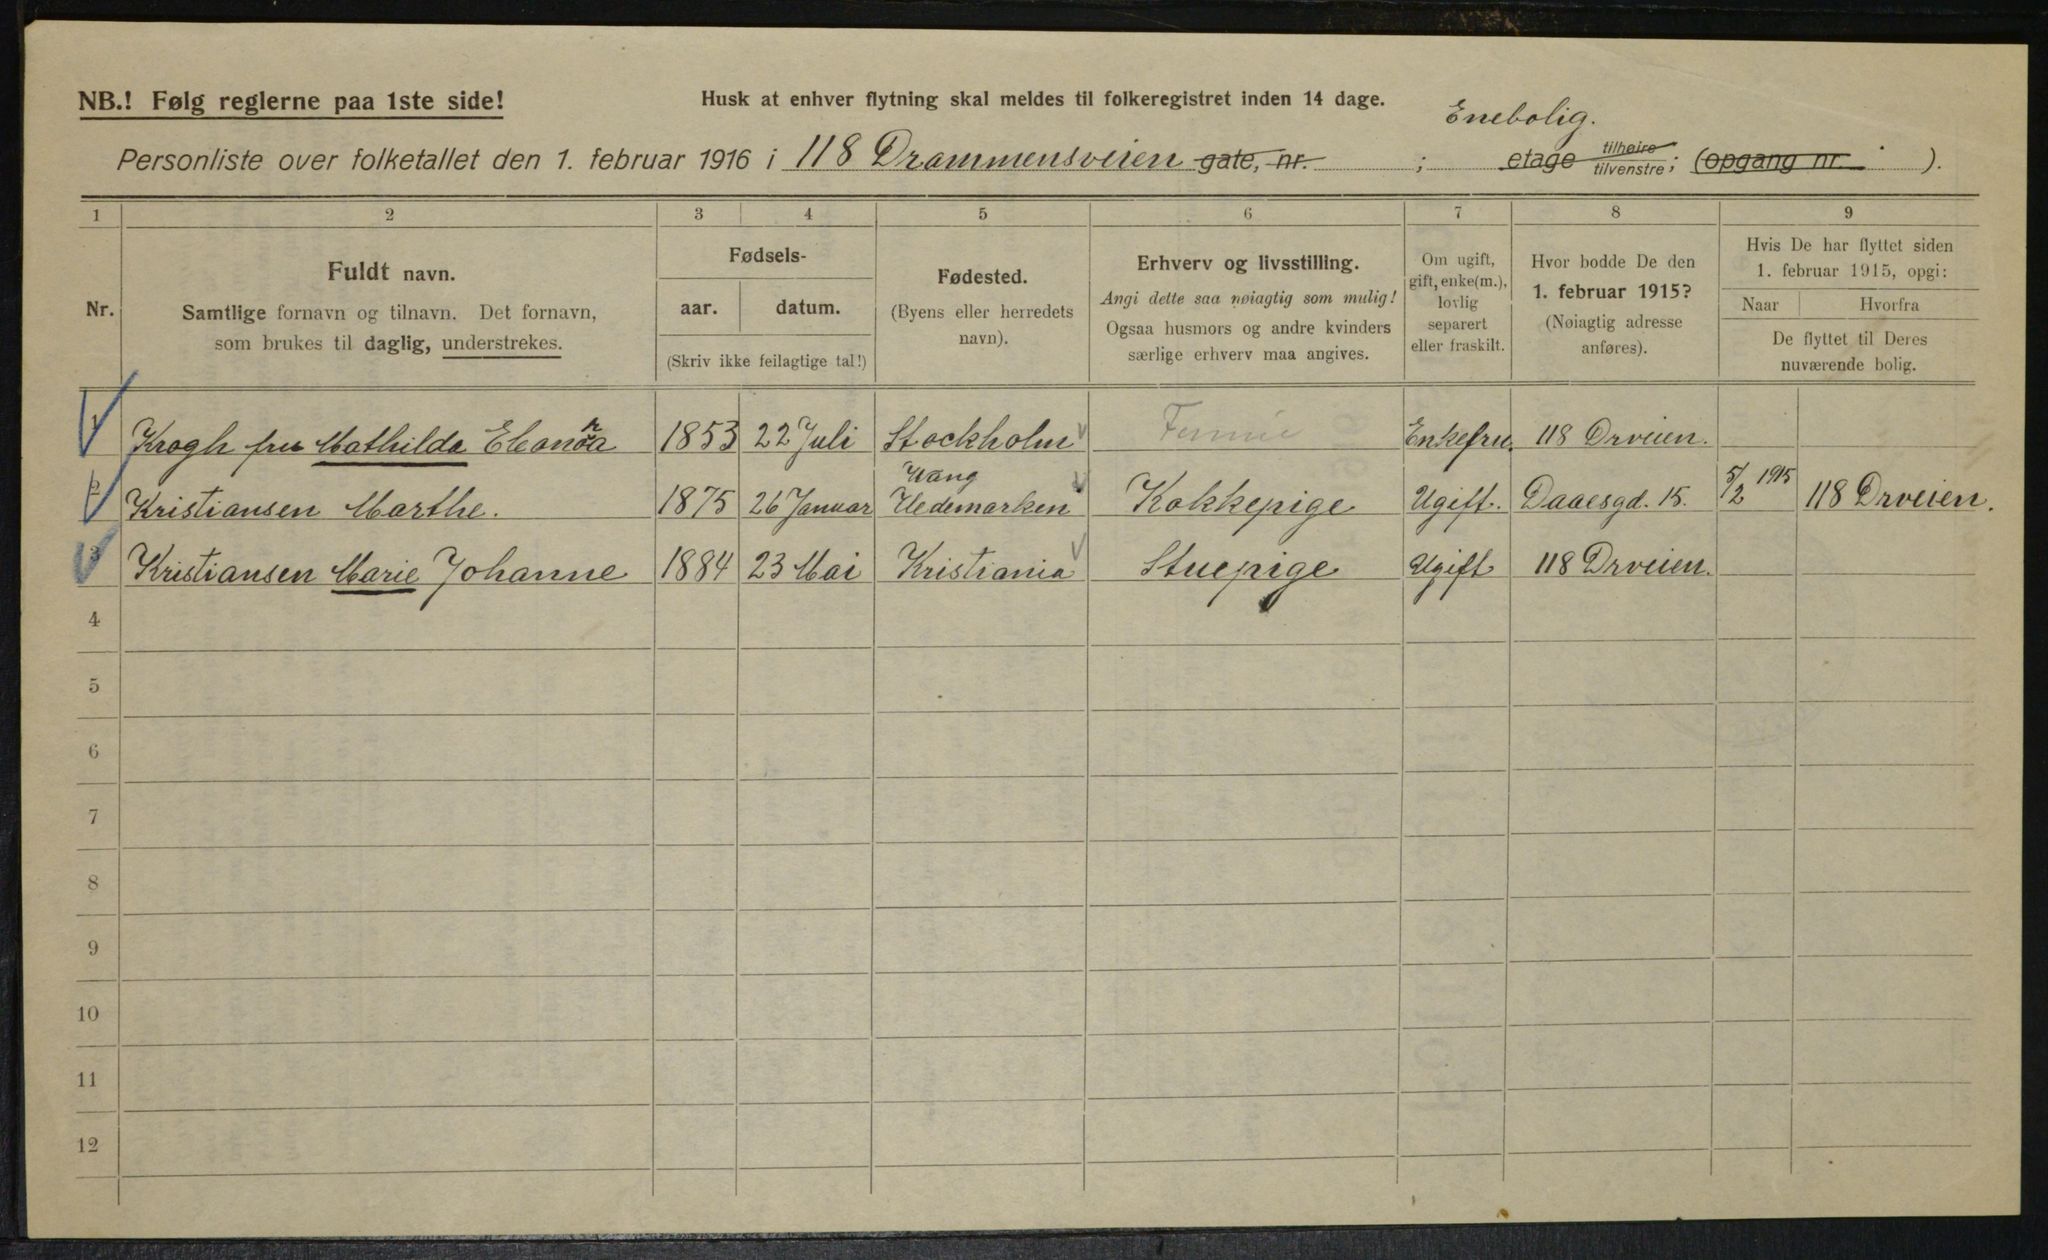 NB.! Følg reglerne paa 1ste side!
Husk at enhver flytning skal meldes til folkeregistret inden 14 dage.
Enebolig.
Personliste over folketallet den 1. februar 1916 i 118 Drammensveien gate, nr. ; etage tilhøire tilvenstre; (opgang nr. ).
1 2 3 4 5 6 7 8 9
Nr.
Fuldt navn.
Samtlige fornavn og tilnavn. Det fornavn,
som brukes til daglig, understrekes.
Fødsels-
aar. datum.
(Skriv ikke feilagtige tal!)
Fødested.
(Byens eller herredets
navn).
Erhverv og livsstilling.
Angi dette saa nøiagtig som mulig!
Ogsaa husmors og andre kvinders
særlige erhverv maa angives.
Om ugift,
gift, enke(m.),
lovlig
separert
eller fraskilt.
Hvor bodde De den
1. februar 1915?
(Nøiagtig adresse
anføres).
Hvis De har flyttet siden
1. februar 1915, opgi:
Naar Hvorfra
De flyttet til Deres
nuværende bolig.
1 Krogh fru Mathilda Eleonora 1853 22 Juli Stockholm Enkefru. 118 Drveien.
2 Kristiansen Marthe. 1875 26 Januar Vang Hedemarken Kokkepige Ugift. Daaesgd. 15. 5/2 1915 118 Drveien.
3 Kristiansen Marie Johanne 1884 23 Mai Kristiania Stuepige Ugift 118 Drveien.
4
5
6
7
8
9
10
11
12